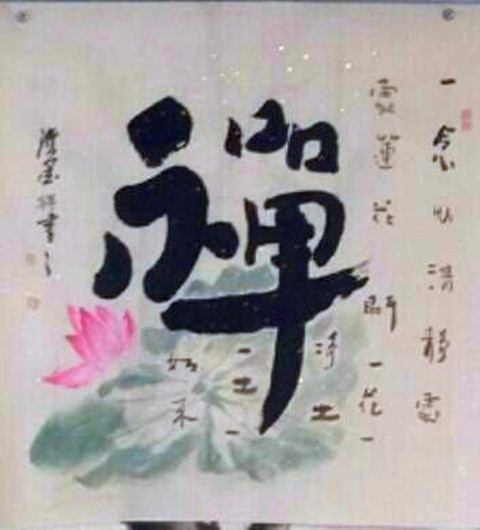 禪
一念心清靜處
處蓮花開一花一
淨土
一土一
如来